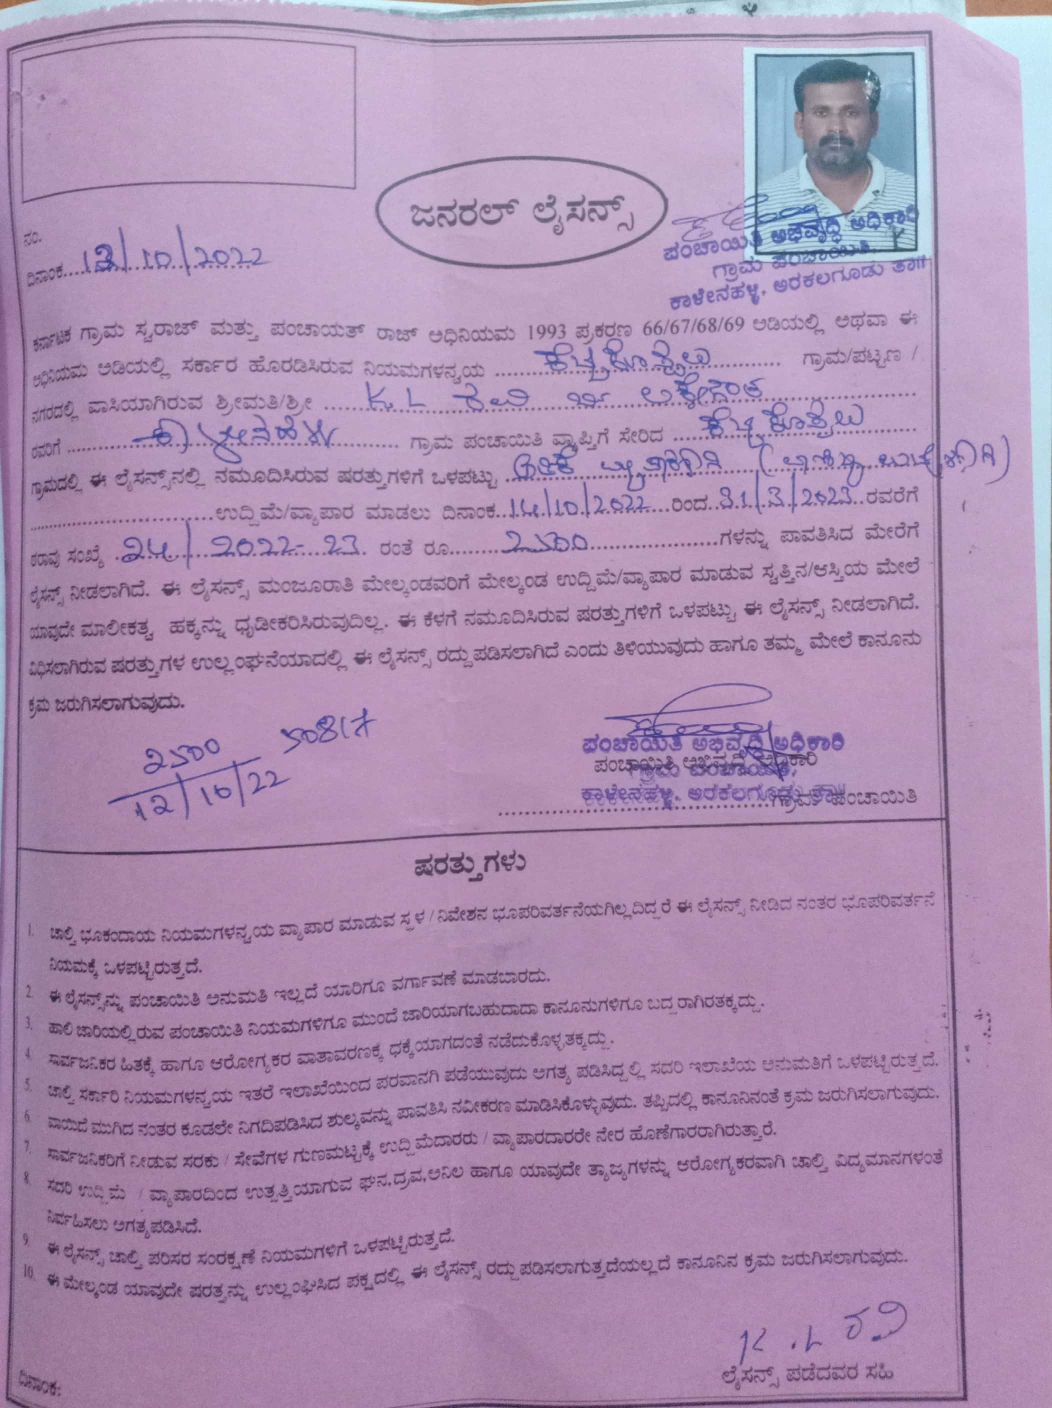 ಜನರಲ್ ಲೈಸನ್ಸ್
ನಂ.
ದಿನಾಂಕ....12/10/2022
ಪಂಚಾಯಿತಿ ಅಭಿವೃದ್ಧಿ ಅಧಿಕಾರಿ
ಗ್ರಾಮ ಪಂಚಾಯಿತಿ,
ಕಾಳೇನಹಳ್ಳಿ, ಅರಕಲಗೂಡು ತಾ||
ಕರ್ನಾಟಕ ಗ್ರಾಮ ಸ್ವರಾಜ್ ಮತ್ತು ಪಂಚಾಯತ್ ರಾಜ್ ಅಧಿನಿಯಮ 1993 ಪ್ರಕರಣ 66/67/68/69 ಅಡಿಯಲ್ಲಿ ಅಥವಾ ಈ
ಅಧಿನಿಯಮ ಅಡಿಯಲ್ಲಿ ಸರ್ಕಾರ ಹೊರಡಿಸಿರುವ ನಿಯಮಗಳನ್ವಯ ........ ಗ್ರಾಮ/ಪಟ್ಟಣ /
ನಗರದಲ್ಲಿ ವಾಸಿಯಾಗಿರುವ ಶ್ರೀಮತಿ/ಶ್ರೀ K.L ರವಿ ಬಿನ್ ಲಕ್ಕೇಗೌಡ
ರವರಿಗೆ ಕಾಳೇನಹಳ್ಳಿ ಗ್ರಾಮ ಪಂಚಾಯಿತಿ ವ್ಯಾಪ್ತಿಗೆ ಸೇರಿದ
ಗ್ರಾಮದಲ್ಲಿ ಈ ಲೈಸನ್ಸ್‌ನಲ್ಲಿ ನಮೂದಿಸಿರುವ ಷರತ್ತುಗಳಿಗೆ ಒಳಪಟ್ಟು
ಉದ್ದಿಮೆ/ವ್ಯಾಪಾರ ಮಾಡಲು ದಿನಾಂಕ..14/10/2022...ರಿಂದ..31/3/2023..ರವರೆಗೆ
ಠರಾವು ಸಂಖ್ಯೆ 24/2022-23. ರಂತೆ ರೂ.....2500.....ಗಳನ್ನು ಪಾವತಿಸಿದ ಮೇರೆಗೆ
ಲೈಸನ್ಸ್ ನೀಡಲಾಗಿದೆ. ಈ ಲೈಸನ್ಸ್ ಮಂಜೂರಾತಿ ಮೇಲ್ಕಂಡವರಿಗೆ ಮೇಲ್ಕಂಡ ಉದ್ದಿಮೆ/ವ್ಯಾಪಾರ ಮಾಡುವ ಸ್ವತ್ತಿನ/ಆಸ್ತಿಯ ಮೇಲೆ
ಯಾವುದೇ ಮಾಲೀಕತ್ವ ಹಕ್ಕನ್ನು ಧೃಡೀಕರಿಸಿರುವುದಿಲ್ಲ. ಈ ಕೆಳಗೆ ನಮೂದಿಸಿರುವ ಷರತ್ತುಗಳಿಗೆ ಒಳಪಟ್ಟು ಈ ಲೈಸನ್ಸ್ ನೀಡಲಾಗಿದೆ.
ವಿಧಿಸಲಾಗಿರುವ ಷರತ್ತುಗಳ ಉಲ್ಲಂಘನೆಯಾದಲ್ಲಿ ಈ ಲೈಸನ್ಸ್ ರದ್ದುಪಡಿಸಲಾಗಿದೆ ಎಂದು ತಿಳಿಯುವುದು ಹಾಗೂ ತಮ್ಮ ಮೇಲೆ ಕಾನೂನು
ಕ್ರಮ ಜರುಗಿಸಲಾಗುವುದು.
2500
12/10/22
50817
ಪಂಚಾಯಿತಿ ಅಭಿವೃದ್ಧಿ ಅಧಿಕಾರಿ
ಪಂಚಾಯಿತಿ ಅಭಿವೃದ್ಧಿ ಅಧಿಕಾರಿ
ಗ್ರಾಮ ಪಂಚಾಯಿತಿ,
ಕಾಳೇನಹಳ್ಳಿ, ಅರಕಲಗೂಡು ತಾ||
ಗ್ರಾಮ ಪಂಚಾಯಿತಿ
ಷರತ್ತುಗಳು
1. ಚಾಲ್ತಿ ಭೂಕಂದಾಯ ನಿಯಮಗಳನ್ವಯ ವ್ಯಾಪಾರ ಮಾಡುವ ಸ್ಥಳ / ನಿವೇಶನ ಭೂಪರಿವರ್ತನೆಯಗಿಲ್ಲದಿದ್ದರೆ ಈ ಲೈಸನ್ಸ್ ನೀಡಿದ ನಂತರ ಭೂಪರಿವರ್ತನೆ
ನಿಯಮಕ್ಕೆ ಒಳಪಟ್ಟಿರುತ್ತದೆ.
2. ಈ ಲೈಸನ್ಸ್‌ನ್ನು ಪಂಚಾಯಿತಿ ಅನುಮತಿ ಇಲ್ಲದೆ ಯಾರಿಗೂ ವರ್ಗಾವಣೆ ಮಾಡಬಾರದು.
3. ಹಾಲಿ ಜಾರಿಯಲ್ಲಿರುವ ಪಂಚಾಯಿತಿ ನಿಯಮಗಳಿಗೂ ಮುಂದೆ ಜಾರಿಯಾಗಬಹುದಾದಾ ಕಾನೂನುಗಳಿಗೂ ಬದ್ದರಾಗಿರತಕ್ಕದ್ದು.
4. ಸಾರ್ವಜನಿಕರ ಹಿತಕ್ಕೆ ಹಾಗೂ ಆರೋಗ್ಯಕರ ವಾತಾವರಣಕ್ಕೆ ಧಕ್ಕೆಯಾಗದಂತೆ ನಡೆದುಕೊಳ್ಳತಕ್ಕದ್ದು.
5. ಚಾಲ್ತಿ ಸರ್ಕಾರಿ ನಿಯಮಗಳನ್ವಯ ಇತರೆ ಇಲಾಖೆಯಿಂದ ಪರವಾನಗಿ ಪಡೆಯುವುದು ಅಗತ್ಯ ಪಡಿಸಿದ್ದಲ್ಲಿ ಸದರಿ ಇಲಾಖೆಯ ಅನುಮತಿಗೆ ಒಳಪಟ್ಟಿರುತ್ತದೆ.
6. ವಾಯಿದೆ ಮುಗಿದ ನಂತರ ಕೂಡಲೇ ನಿಗದಿಪಡಿಸಿದ ಶುಲ್ಕವನ್ನು ಪಾವತಿಸಿ ನವೀಕರಣ ಮಾಡಿಸಿಕೊಳ್ಳುವುದು. ತಪ್ಪಿದಲ್ಲಿ ಕಾನೂನಿನಂತೆ ಕ್ರಮ ಜರುಗಿಸಲಾಗುವುದು.
7. ಸಾರ್ವಜನಿಕರಿಗೆ ನೀಡುವ ಸರಕು / ಸೇವೆಗಳ ಗುಣಮಟ್ಟಕ್ಕೆ ಉದ್ದಿಮೆದಾರರು / ವ್ಯಾಪಾರದಾರರೇ ನೇರ ಹೊಣೆಗಾರರಾಗಿರುತ್ತಾರೆ.
8. ಸದರಿ ಉದ್ದಿಮೆ / ವ್ಯಾಪಾರದಿಂದ ಉತ್ಪತ್ತಿಯಾಗುವ ಘನ,ದ್ರವ,ಅನಿಲ ಹಾಗೂ ಯಾವುದೇ ತ್ಯಾಜ್ಯಗಳನ್ನು ಆರೋಗ್ಯಕರವಾಗಿ ಚಾಲ್ತಿ ವಿದ್ಯಮಾನಗಳಂತೆ
ನಿರ್ವಹಿಸಲು ಅಗತ್ಯಪಡಿಸಿದೆ.
9. ಈ ಲೈಸನ್ಸ್ ಚಾಲ್ತಿ ಪರಿಸರ ಸಂರಕ್ಷಣೆ ನಿಯಮಗಳಿಗೆ ಒಳಪಟ್ಟಿರುತ್ತದೆ.
10. ಈ ಮೇಲ್ಕಂಡ ಯಾವುದೇ ಷರತ್ತನ್ನು ಉಲ್ಲಂಘಿಸಿದ ಪಕ್ಷದಲ್ಲಿ ಈ ಲೈಸನ್ಸ್ ರದ್ದುಪಡಿಸಲಾಗುತ್ತದೆಯಲ್ಲದೆ ಕಾನೂನಿನ ಕ್ರಮ ಜರುಗಿಸಲಾಗುವುದು.
K.L ರವಿ
ಲೈಸನ್ಸ್ ಪಡೆದವರ ಸಹಿ
ದಿನಾಂಕ: